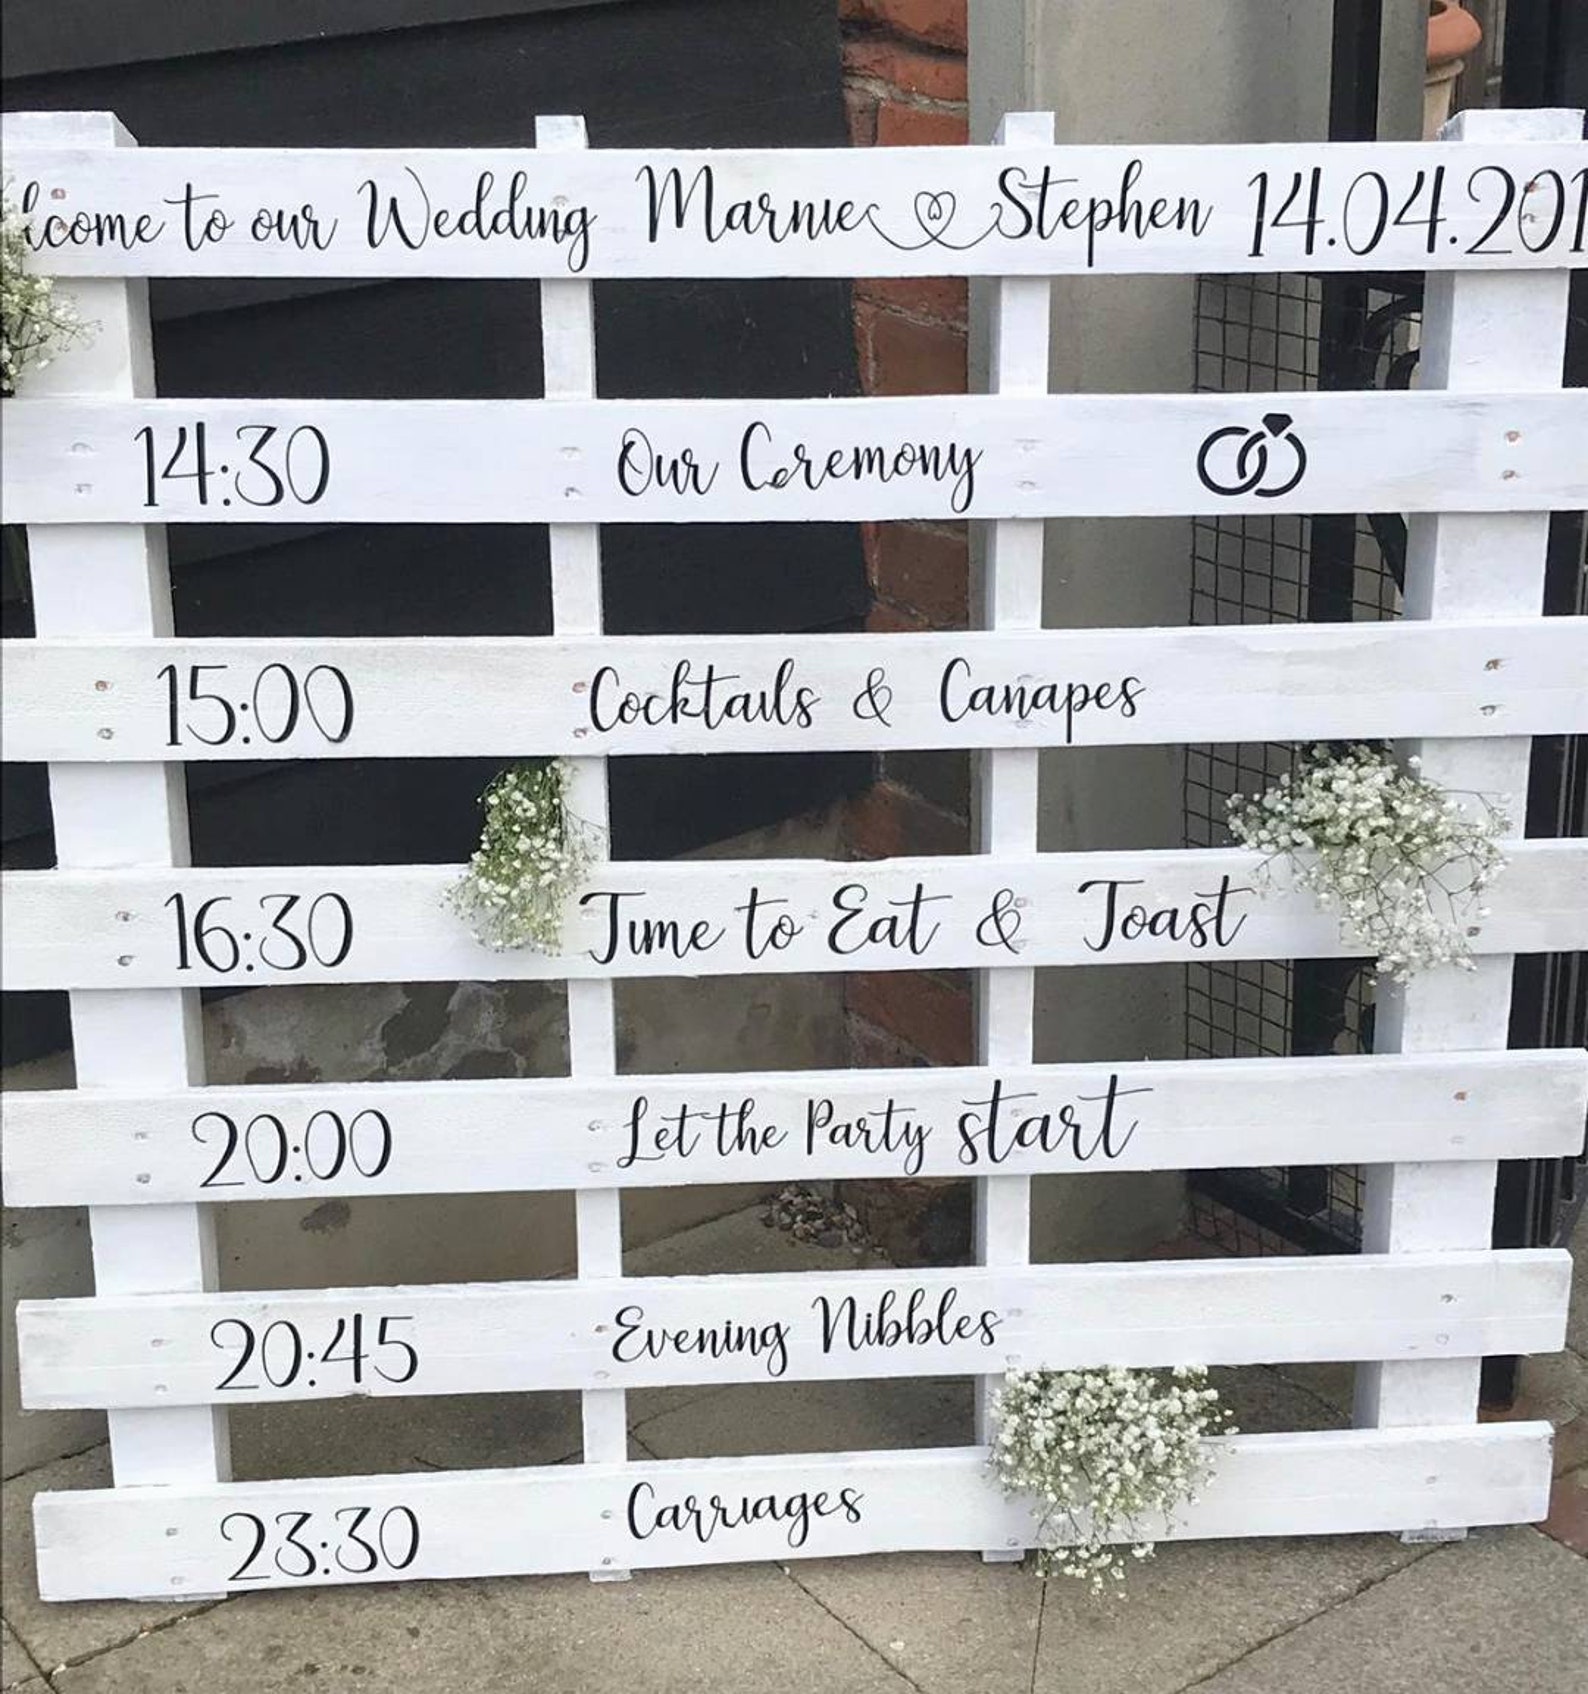 lcome to our Wedding Marnie Stephen 14.04.201
14:30 Our Ceremony
15:00 Cocktails & Canapes
16:30 Time to Eat & Toast
20:00 Let the Party start
20:45 Evening Nibbles
23:30 Carriages